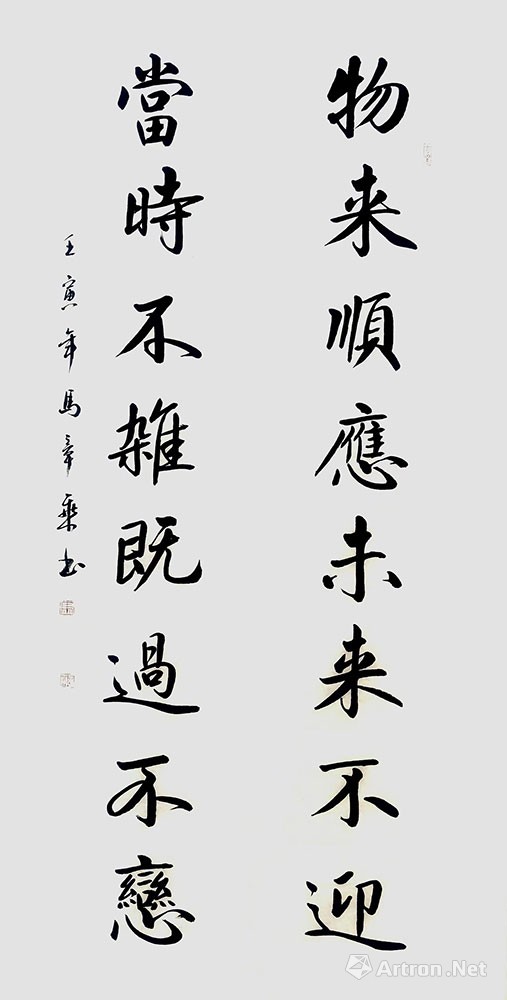 物来順應未来不迎
當時不雑既過不戀
壬寅年馬章乗书
Artron.Net